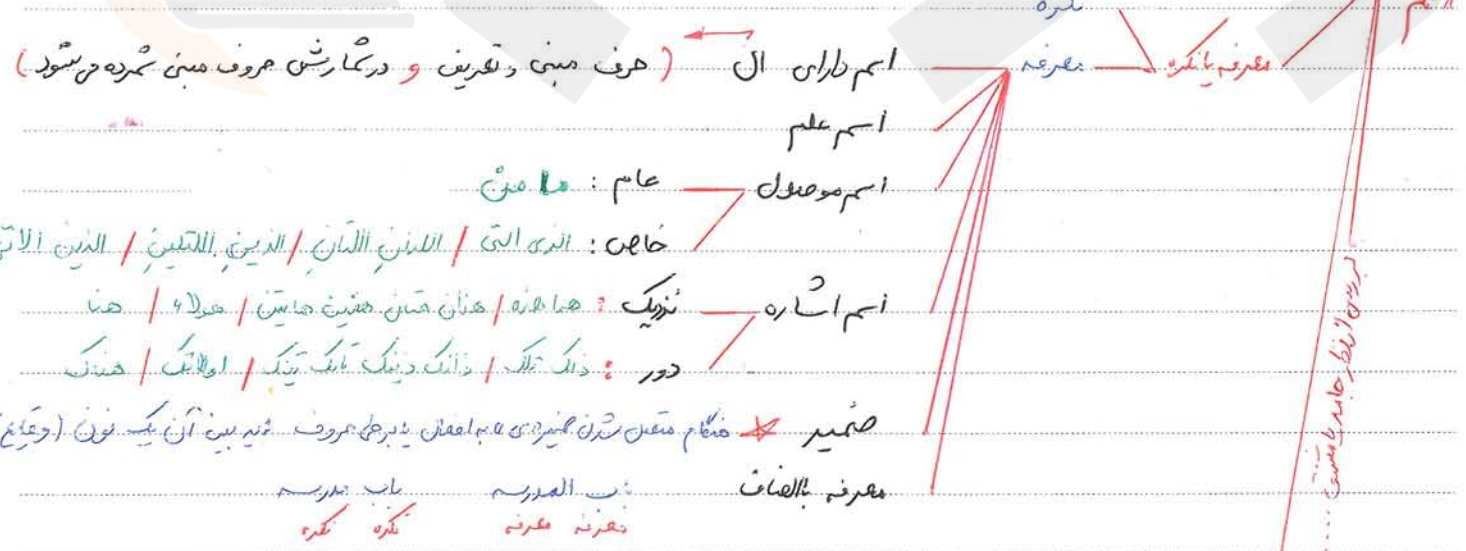 نکره
اسم
معرفه یا نکره معرفه اسم دارای ال ( حرف مبنی و تعریف و در شمارش حروف مبنی شمرده می شود )
اسم علم
اسم موصول عام : ما من
خاص : الذی التی / اللذانِ اللتانِ / الذینِ اللتینِ / الذین الاتی
اسم اشاره نزدیک : هذا هذه / هذان هتان هذین هاتین / هولاء / هنا
دور : ذلک تلک / ذانک ذینک تانک تینک / اولائک / هناک
ضمیر هنگام متصل شدن ضمیر «ی» به افعال یا برخی حروف بین آن یک نون ( وقایه
معرفه بالضاف باب المدرسه باب مدرسه
معرفه معرفه نکره نکره
بررسی از نظر جامد یا مشتق ...